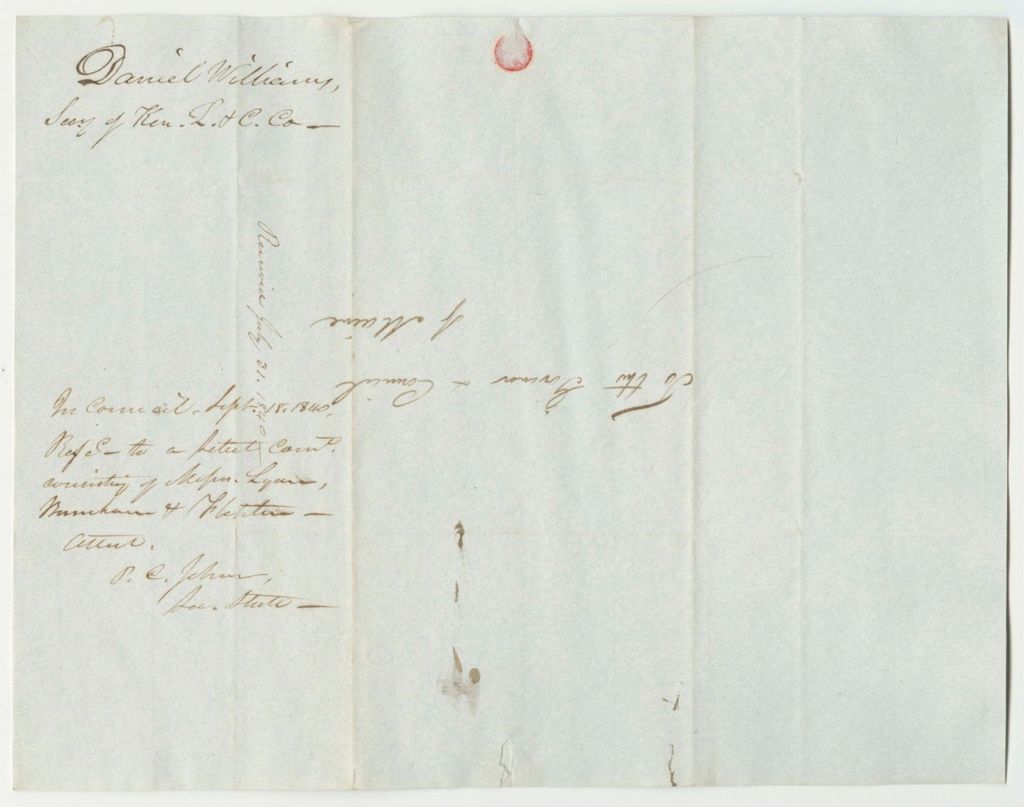 Daniel Williams,
Secy of Ken. L. & C. Co —
Received July 31. 1840
In Council. Sept. 18. 1840.
Refd — to a select Comt.
consisting of Messrs. Lyman,
& Fletcher —
Attest.
P. C. Johnson,
Sec. State —
To the Governor & Council
of Maine